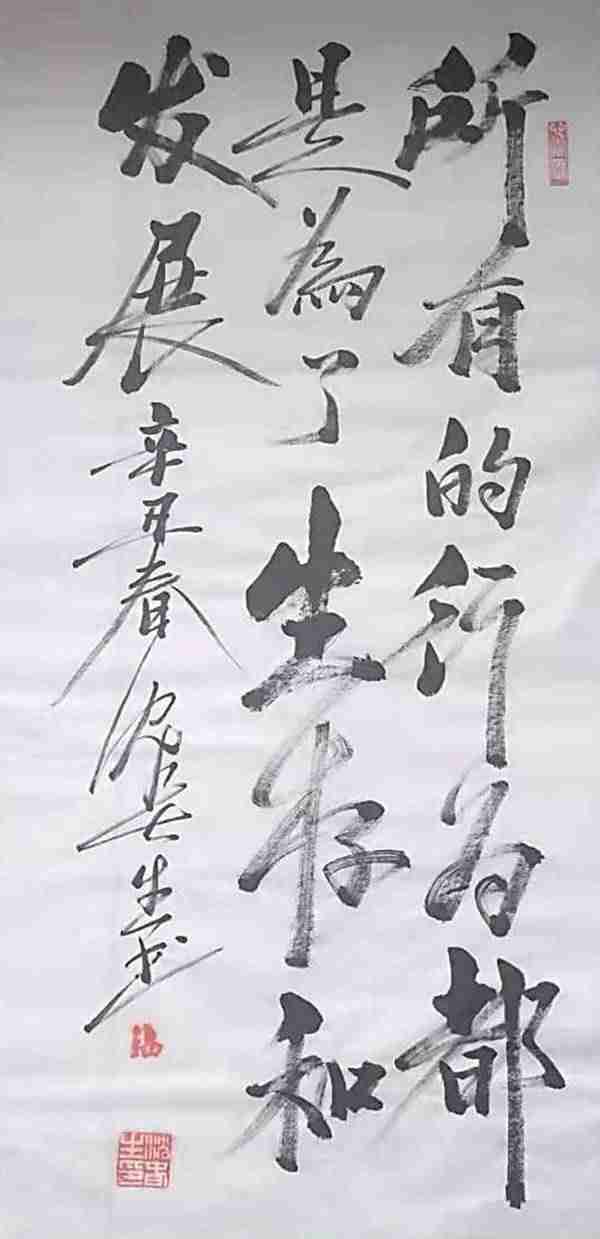 所有的行为都
是為了生存和
发展
辛丑春
生